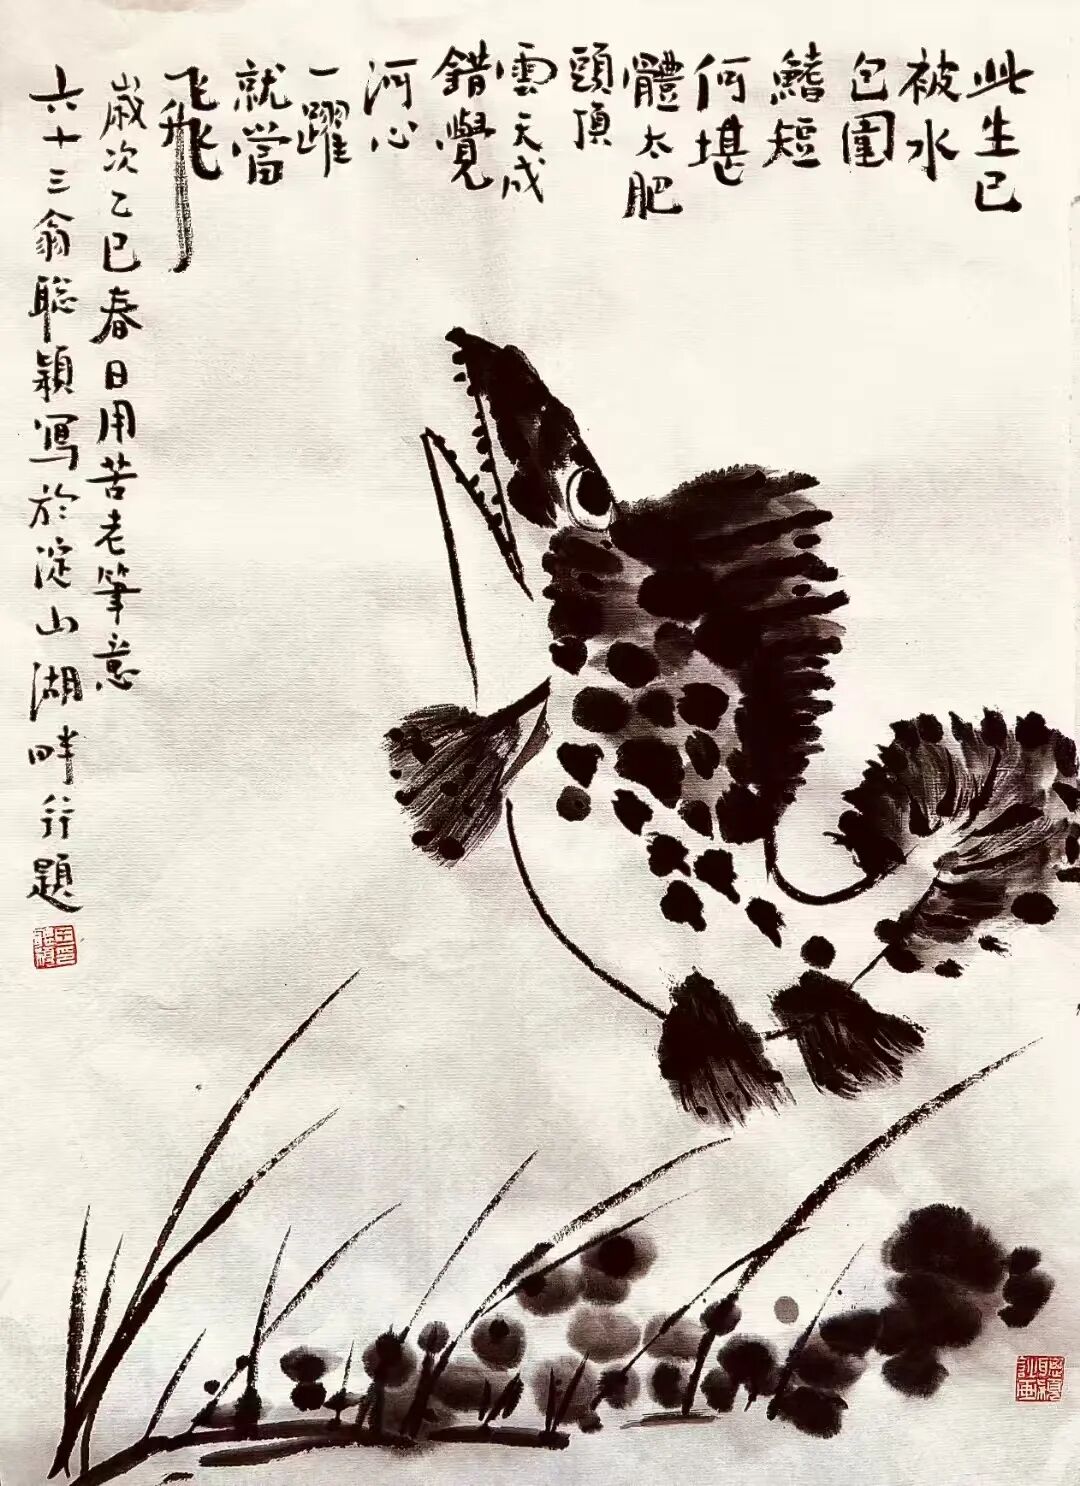 此生已
被水
包圍
鰭短
何堪
體太肥
頭頂
雲天成
錯覺
河心
一躍
就當
飛
歲次乙巳春日用苦老筆意
六十三翁聡穎寫於淀山湖畔并題